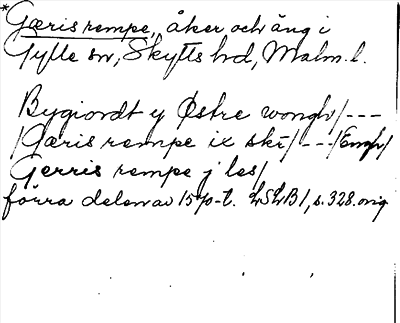 *Gæris rempe, åker och äng i
Gylle sn, Skytts hd, Malm. l.
Bygiordt y Østre wongh/---
/Gæris rempe ix ske/---/Engh/
Gerris rempe j les/
förra delen av 1570-t. LSLB1, s. 328. orig